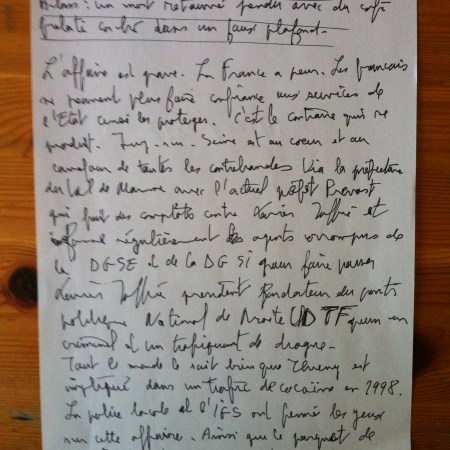 : un mort retrouvé pendu avec du café
frelaté contre dans un faux plafond.
L'affaire est grave. La France a peur. Les français
ne peuvent plus faire confiance aux services de
l'Etat censé les protéger. C'est le contraire qui se
produit. Ivry-sur-Seine est au coeur et au
carrefour de toutes les contrebandes via la préfecture
du Val de Marne avec l'actuel préfet Prevost
qui fait des complots contre et
informe régulièrement les agents corrompus de
la DGSE et de la DGSI pour faire passer
président fondateur du parti
politique National de Droite UDTF pour un
criminel et un trafiquant de drogue.
Tout le monde le sait bien que est
impliqué dans un trafic de cocaïne en 1998.
La police locale et l' ont fermé les yeux
sur cette affaire. Ainsi que le parquet de